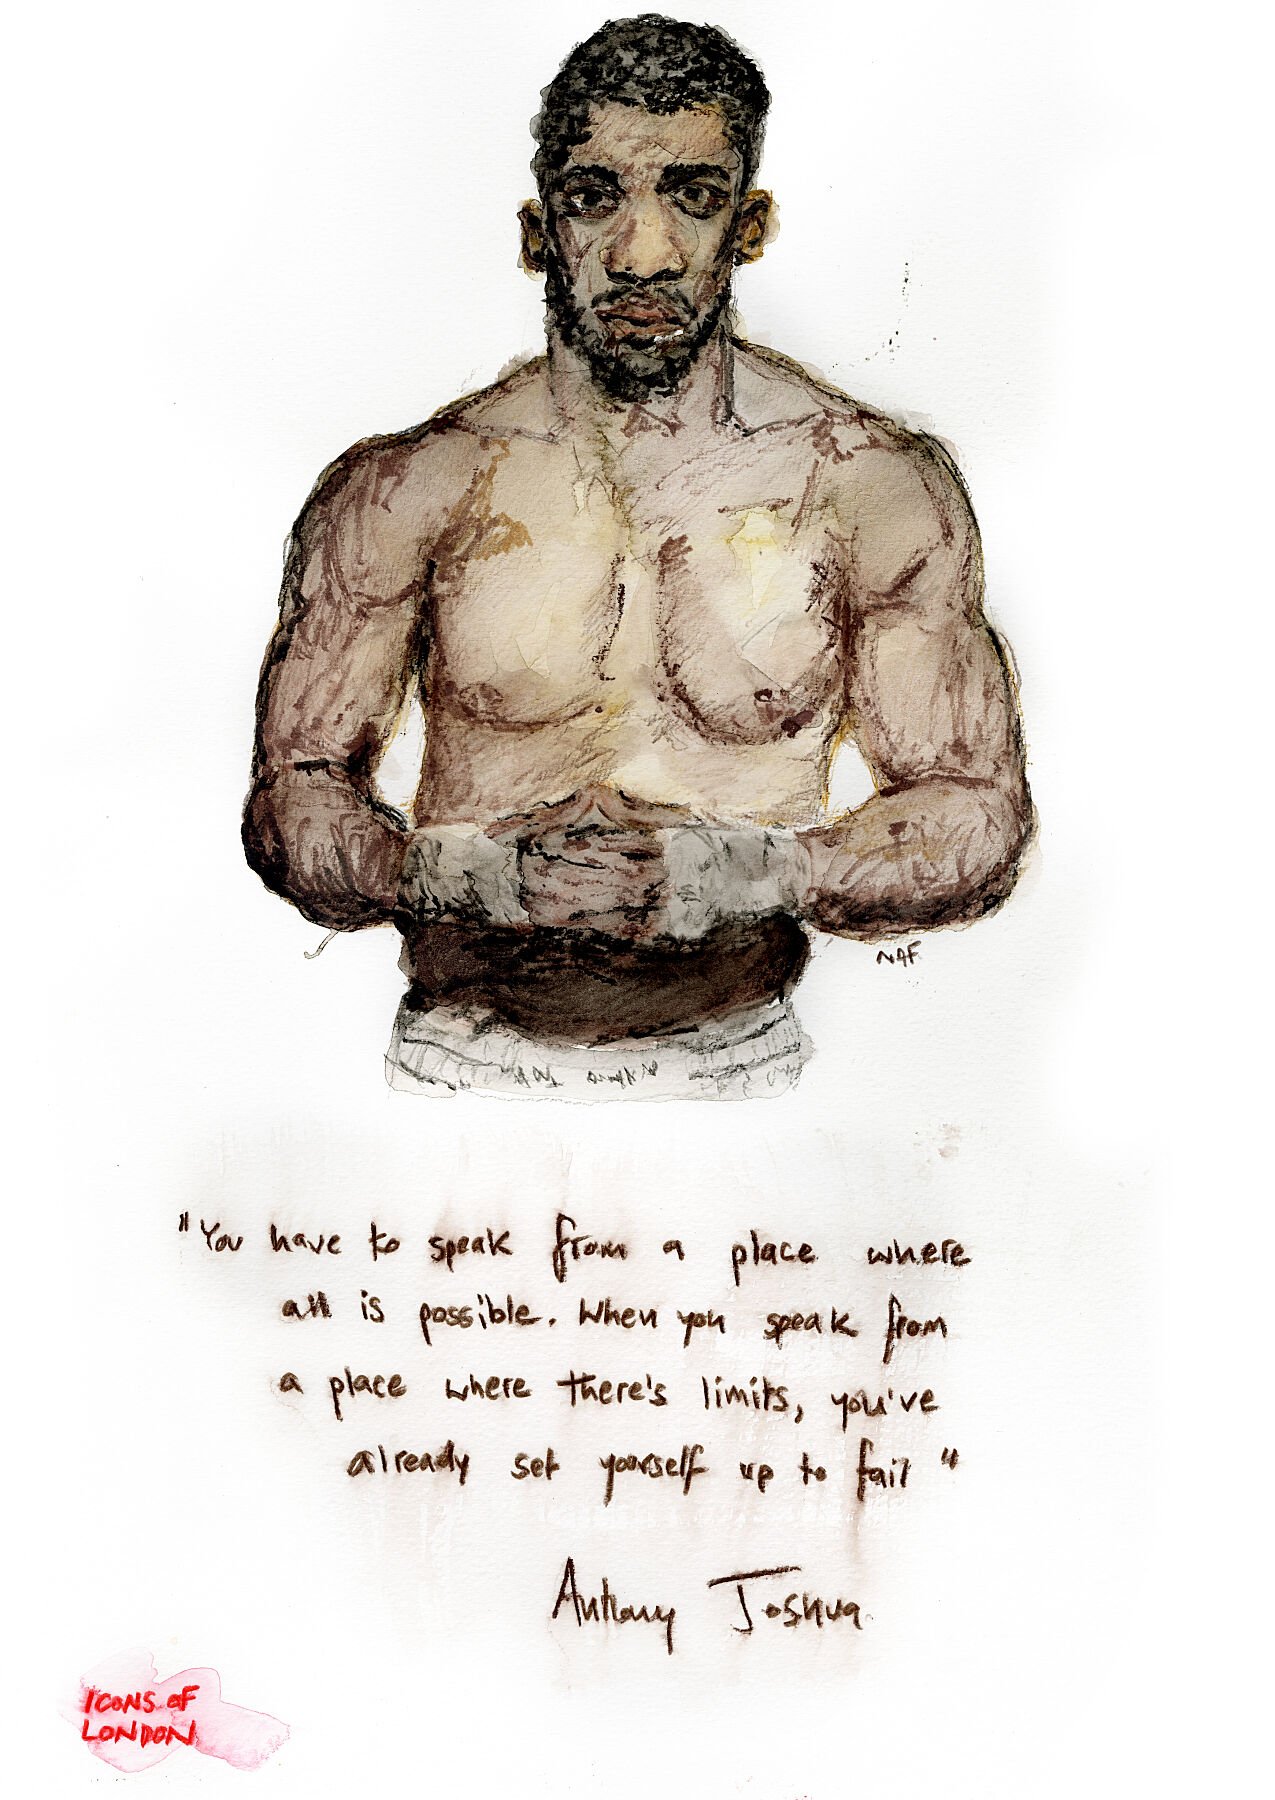 NAF
"You have to speak from a place where
all is possible. When you speak from
a place where there's limits, you've
already set yourself up to fail"
Anthony Joshua
ICONS OF
LONDON